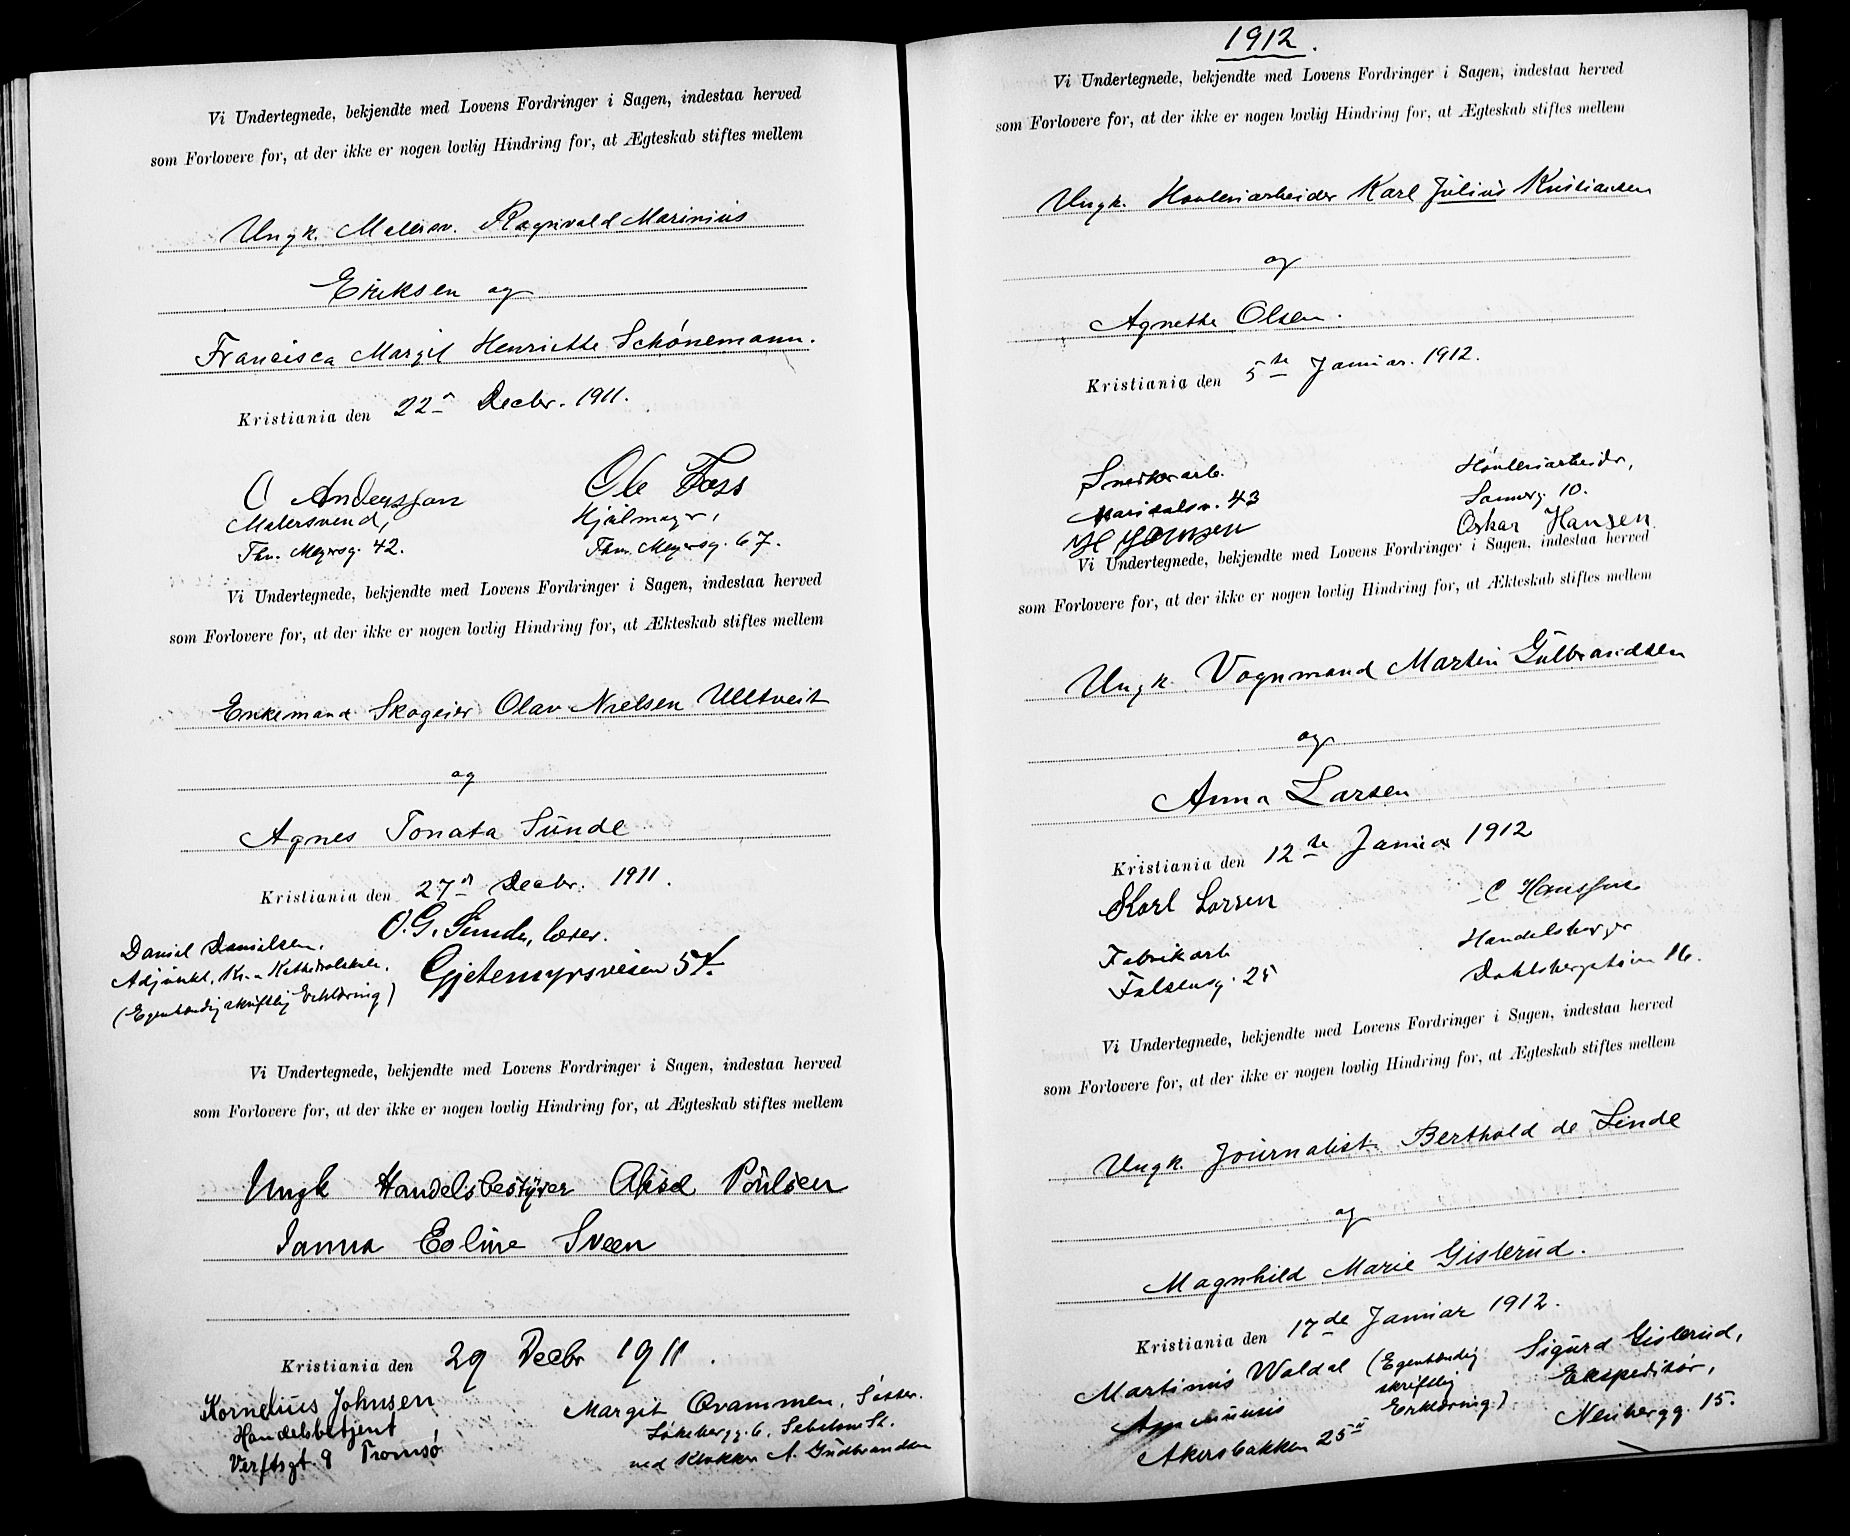 Vi Undertegnede, bekjendte med Lovens Fordringer i Sagen, indestaa herved
som Forlovere for, at der ikke er nogen lovlig Hindring for, at Ægteskab stiftes mellem
Ungk. Malersv. Ragnvald Marinius
Eriksen og
Francisca Margit Henriette Schönemann.
Kristiania den 22de Decbr. 1911.
O Andersson
Malersvend,
Thv. Meyersg. 42.
Ole Foss
Hjulmager,
Thv. Meyersg. 67.
Vi Undertegnede, bekjendte med Lovens Fordringer i Sagen, indestaa herved
som Forlovere for, at der ikke er nogen lovlig Hindring for, at Ækteskab stiftes mellem
Enkemand Skogeier Olav Nielsen Ulltveit
og
Agnes Tonata Sunde
Kristiania den 27de Decbr. 1911.
Daniel Danielsen,
Adjunkt, Kr.a Kathedralskole.
(Egenhændig skriftlig Erklæring)
O. G. Sunde, læser.
Gjetemyrsveien 54.
Vi Undertegnede, bekjendte med Lovens Fordringer i Sagen, indestaa herved
som Forlovere for, at der ikke er nogen lovlig Hindring for, at Ægteskab stiftes mellem
Ungk Handelsbestyrer Aksel Poulsen
Janna Eoline Sveen
Kristiania den 29 Decbr 1911.
Kornelius Johnsen
Handelsbetjent
Verftsgt. 9 Tromsø
Margit Qvammen, Søster.
6,
ved Klokker A. Gudbrandsen
1912.
Vi Undertegnede, bekjendte med Lovens Fordringer i Sagen, indestaa herved
som Forlovere for, at der ikke er nogen lovlig Hindring for, at Ægteskab stiftes mellem
Ungk. Høvleriarbeider Karl Julius Kristiansen
og
Agnethe Olsen.
Kristiania den 5te Januar. 1912.
Snedkerarb.
Maridalsv. 43
H Jensen
Høvleriarbeider,
Sannerg. 10.
Oskar Hansen
Vi Undertegnede, bekjendte med Lovens Fordringer i Sagen, indestaa herved
som Forlovere for, at der ikke er nogen lovlig Hindring for, at Ækteskab stiftes mellem
Ungk. Vognmand Martin Gulbrandsen
og
Anna Larsen
Kristiania den 12te Januar 1912
Karl Larsen
Fabrikarb
Falsensg. 25
C Hansson
Handelsborger
Dahlsbergstien 16.
Vi Undertegnede, bekjendte med Lovens Fordringer i Sagen, indestaa herved
som Forlovere for, at der ikke er nogen lovlig Hindring for, at Ægteskab stiftes mellem
Ungk. Journalist Berthold de Linde
og
Magnhild Marie Gislerud.
Kristiania den 17de Januar 1912.
Martinus Waldal (Egenhændig
skriftlig
Erklæring)
Akersbakken 25
Sigurd Gislerud,
Ekspeditør,
Neubergg. 15.